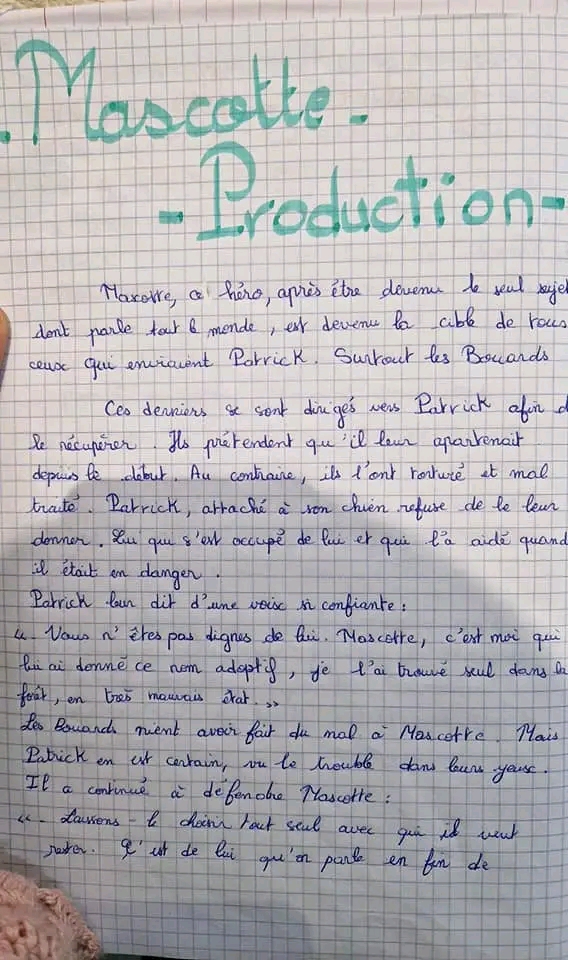 . Mascotte -
- Production -
Mascotte, ce héro, après être devenu le seul sujet
dont parle tout le monde, est devenu la cible de tous
ceux qui enviaient Patrick. Surtout les Bouards
Ces derniers se sont dirigés vers Patrick afin d
le récupérer. Ils prétendent qu'il leur apartenait
depuis le début. Au contraire, ils l'ont torturé et mal
traité. Patrick, attaché à son chien refuse de le leur
donner. Lui qui s'est occupé de lui et qui l'a aidé quand
il était en danger.
Patrick leur dit d'une voix si confiante :
" - Vous n'êtes pas dignes de lui. Mascotte, c'est moi qui
lui ai donné ce nom adoptif, je l'ai trouvé seul dans la
forêt, en très mauvais état. "
Les Bouards nient avoir fait du mal à Mascotte. Mais
Patrick en est certain, vu le trouble dans leurs yeux.
Il a continué à défendre Mascotte :
" - Laissons - le choisir tout seul avec qui il veut
rester. C'est de lui qu'on parle en fin de